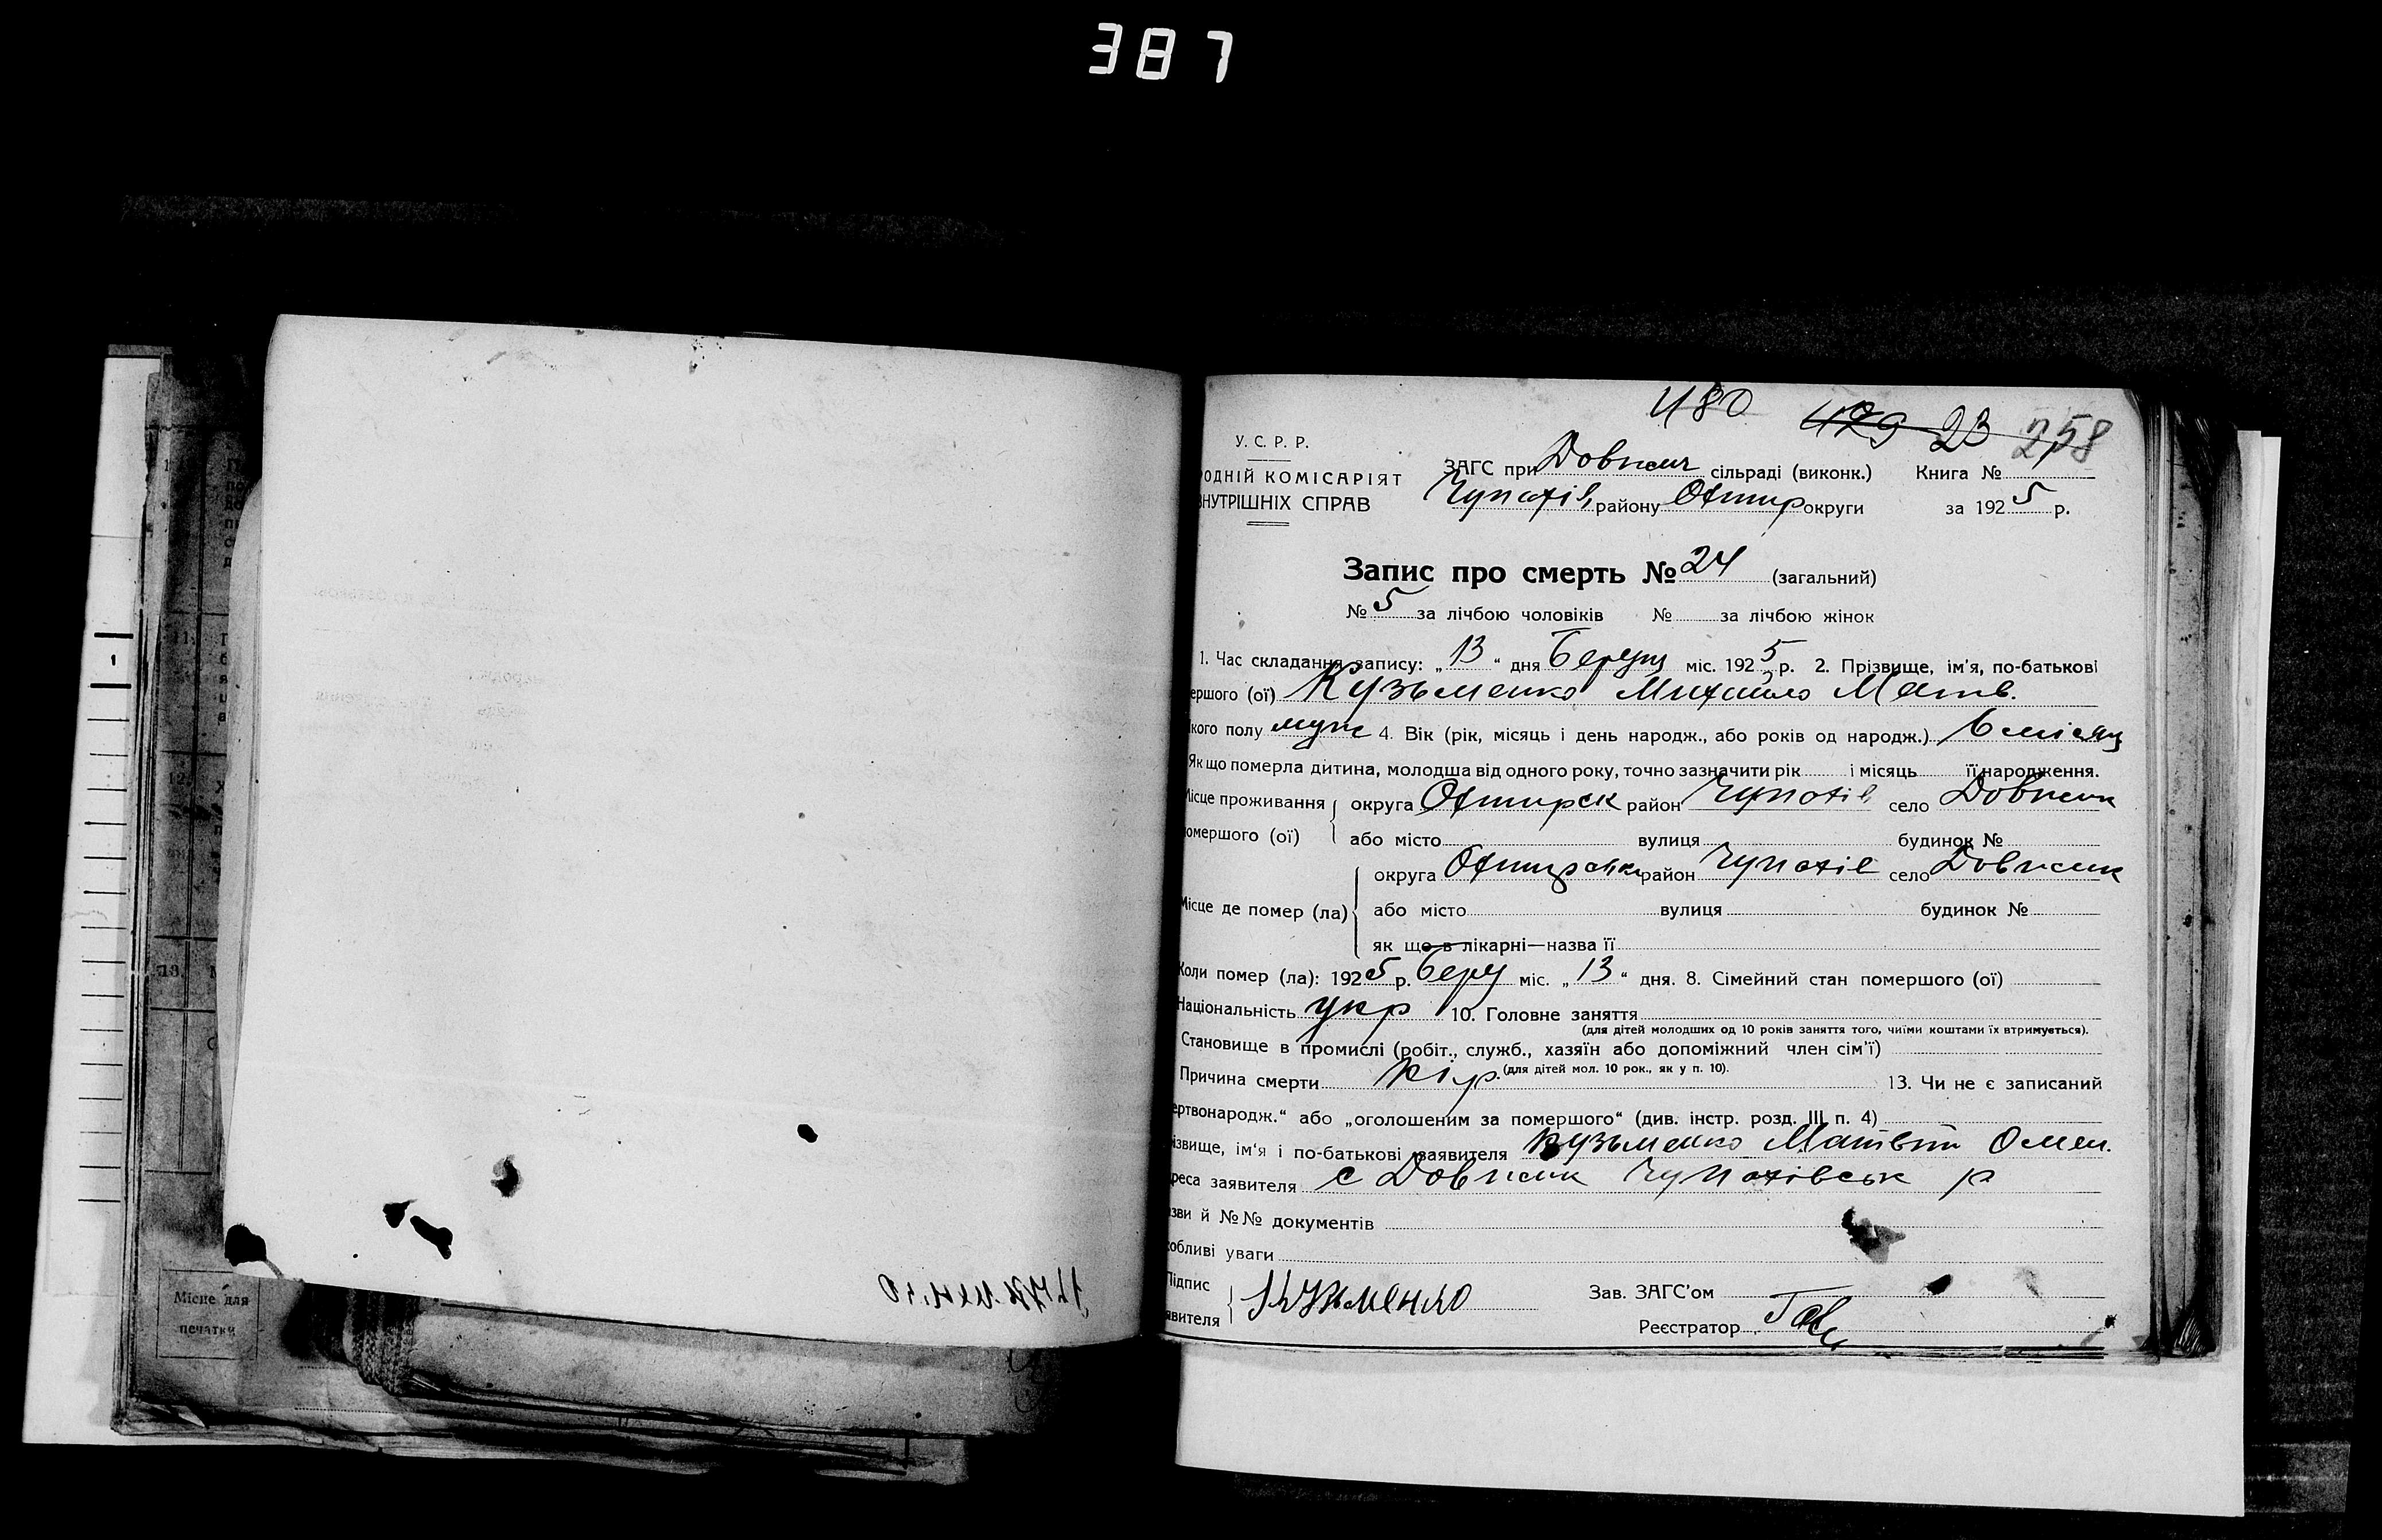 387
480 479 23 258
У. С. Р. Р.
РОДНІЙ КОМІСАРІЯТ
ВНУТРІШНІХ СПРАВ
ЗАГС при Довжич сільраді (виконк.) Книга №
Чупахів, району Охтир округи за 1925 р.
Запис про смерть № 24 (загальний)
№ 5 за лічбою чоловіків № за лічбою жінок
1. Час складання запису: „13“ дня Березня міс. 1925 р. 2. Прізвище, ім'я, по-батькові
ершого (ої) Кузьменко Михайло Матв.
кого полу муж 4. Вік (рік, місяць і день народж., або років од народж.) 6 місяц
Якщо померла дитина, молодша від одного року, точно зазначити рік і місяць її народження.
Місце проживання округа Охтирск район Чупахів село Довжик
омершого (ої) або місто вулиця будинок №
округа Охтирськ район Чупахів село Довжик
Місце де помер (ла) або місто вулиця будинок №
як що в лікарні—назва її
Коли помер (ла): 1925 р. Берез міс. „13“ дня. 8. Сімейний стан помершого (ої)
Національність укр 10. Головне заняття
(для дітей молодших од 10 років заняття того, чиїми коштами їх втримується).
Становище в промислі (робіт., служб., хазяїн або допоміжний член сім'ї)
(для дітей мол. 10 рок., як у п. 10).
Причина смерти кір. 13. Чи не є записаний
ертвонародж.“ або „оголошеним за помершого“ (див. інстр. розд. III п. 4)
ізвище, ім'я і по-батькові заявителя Кузьменко Матвій Омел.
реса заявителя с Довжик Чупахівськ р
зви й №№ документів
обливі уваги
Підпис
явителя Кузьменко Зав. ЗАГС'ом
Реєстратор
Місце для
печатки